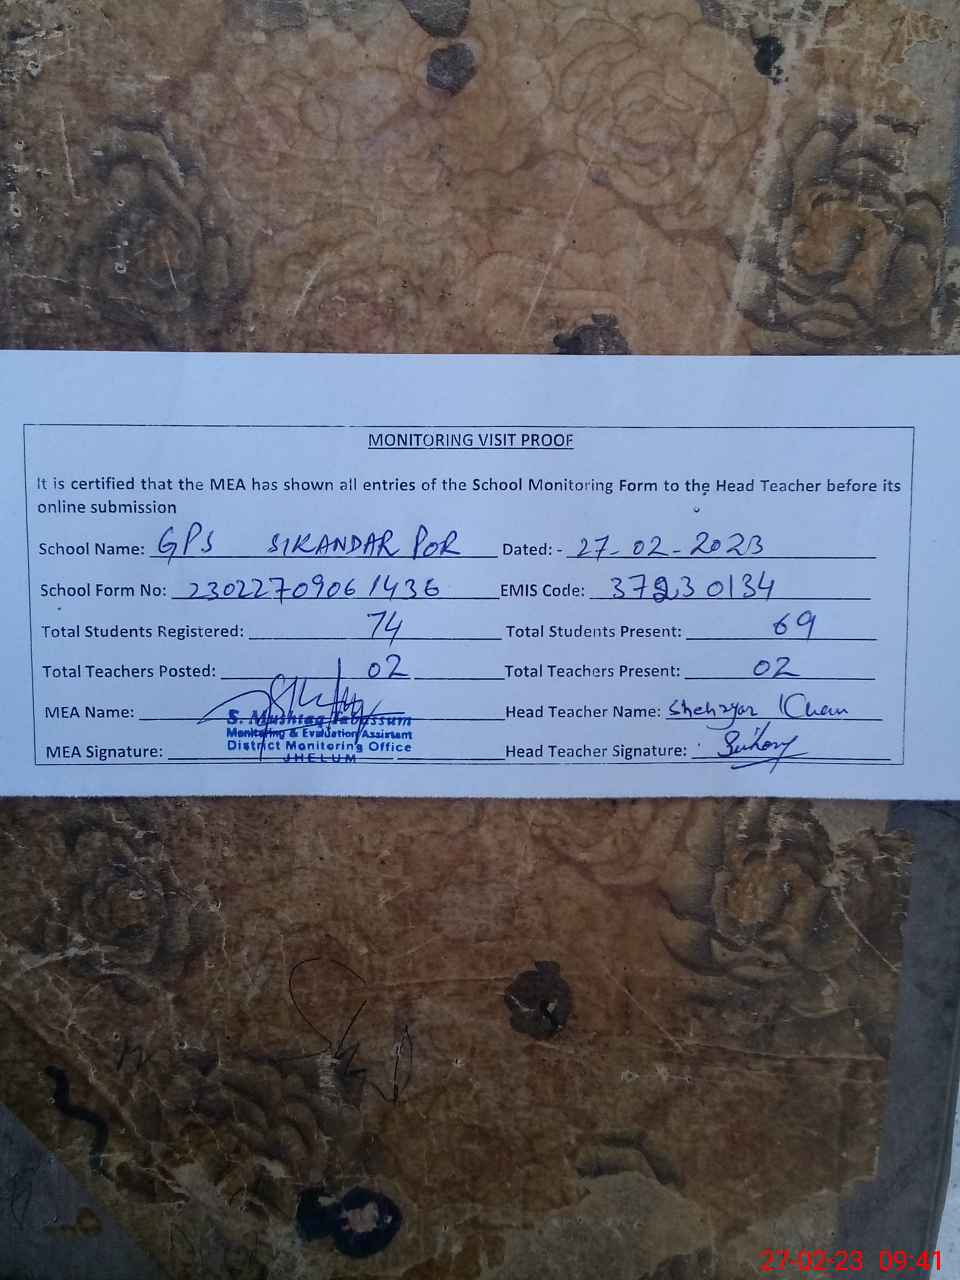 MONITORING VISIT PROOF
It is certified that the MEA has shown all entries of the School Monitoring Form to the Head Teacher before its
online submission
School Name: GPS SIKANDAR POR Dated: - 27-02-2023
School Form No: 2302270906 1436 EMIS Code: 37230134
Total Students Registered: 74 Total Students Present: 69
Total Teachers Posted: 02 Total Teachers Present: 02
MEA Name: Head Teacher Name: Shehryar Khan
S. Mushtaq Tabassum
Monitoring & Evaluation Assistant
District Monitoring Office
JHELUM
MEA Signature: Head Teacher Signature:
27-02-23 09:41